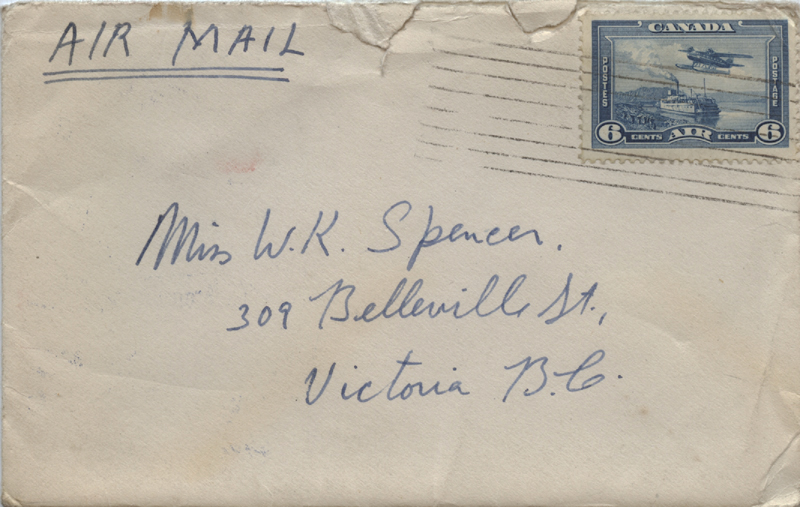 AIR MAIL
CANADA
POSTES
POSTAGE
6 CENTS AIR CENTS 6
Miss W.K. Spencer.
309 Belleville St.,
Victoria B.C.